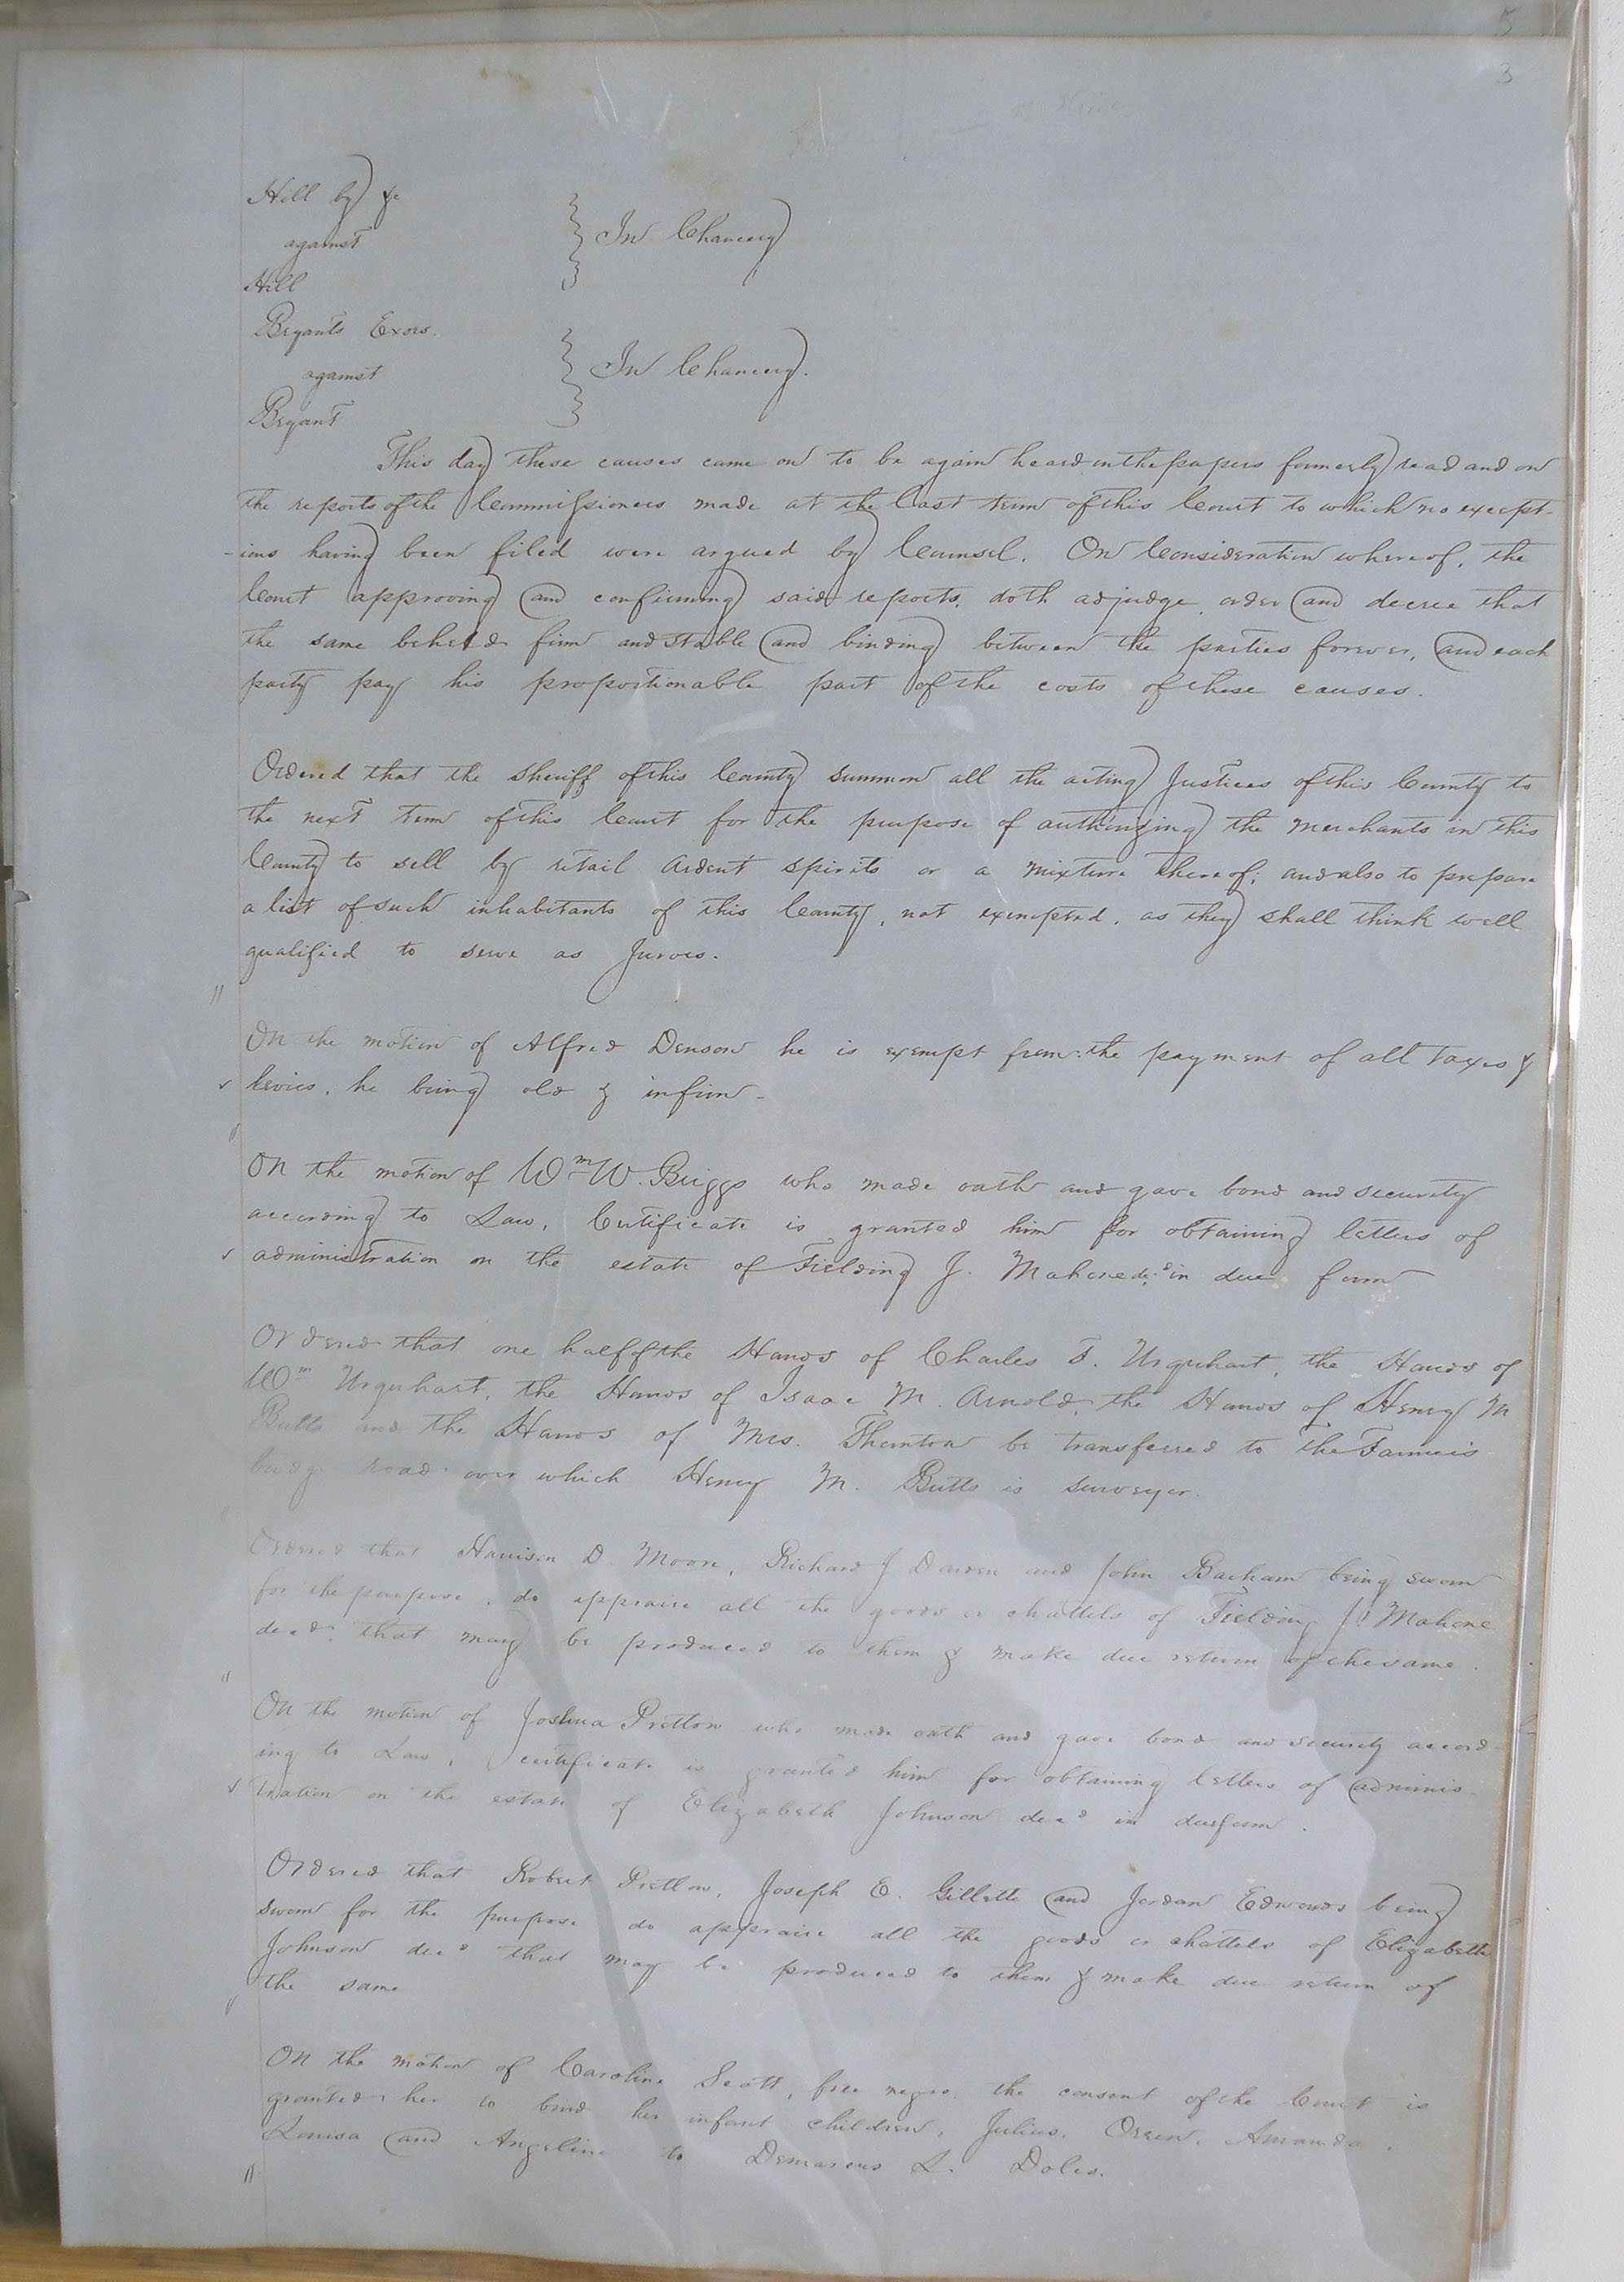 5
3
Hill by &c
against
Hill
In Chancery
Bryants Exors.
against
Bryant
In Chancery.
This day these causes came on to be again heard on the papers formerly read and on
the reports of the Commissioners made at the last term of this Court to which no except-
-ions having been filed were argued by Counsel. On Consideration whereof, the
Court approving and confirming said reports, doth adjudge, order and decree that
the same be held firm and stable and binding between the parties forever, and each
party pay his proportionable part of the costs of these causes.
Ordered that the Sheriff of this County summon all the acting Justices of this County to
the next term of this Court for the purpose of authorizing the Merchants in this
County to sell by retail Ardent spirits or a mixture thereof; and also to prepare
a list of such inhabitants of this County, not exempted, as they shall think well
qualified to serve as Jurors.
On the motion of Alfred Denson he is exempt from the payment of all taxes &
levies, he being old & infirm -
On the motion of Wm W. Briggs who made oath and gave bond and security
according to Law, Certificate is granted him for obtaining letters of
administration on the estate of Fielding J. Mahone decd in due form
Ordered that one half of the Hands of Charles F. Urquhart, the Hands of
Wm Urquhart, the Hands of Isaac M. Arnold, the Hands of Henry M
Butts and the Hands of Mrs. Thornton be transferred to the Farmers
bridge road over which Henry M. Butts is surveyor.
Ordered that Harrison D. Moore, Richard J Darden and John Barham being sworn
for the purpose, do appraise all the goods or chattels of Fielding J. Mahone
decd. that may be produced to them & make due return of the same.
On the motion of Joshua Pretlow who made oath and gave bond and security accord-
ing to Law, certificate is granted him for obtaining letters of adminis-
tration on the estate of Elizabeth Johnson decd in due form.
Ordered that Robert Pretlow, Joseph E. Gillette and Jordan Edwards being
sworn for the purpose do appraise all the goods or chattels of Elizabeth
Johnson decd that may be produced to them & make due return of
the same
On the motion of Caroline Scott, free negro, the consent of the Court is
granted her to bind her infant children, Julius, Orren, Amanda,
Louisa and Angeline to Demarcus L. Doles.